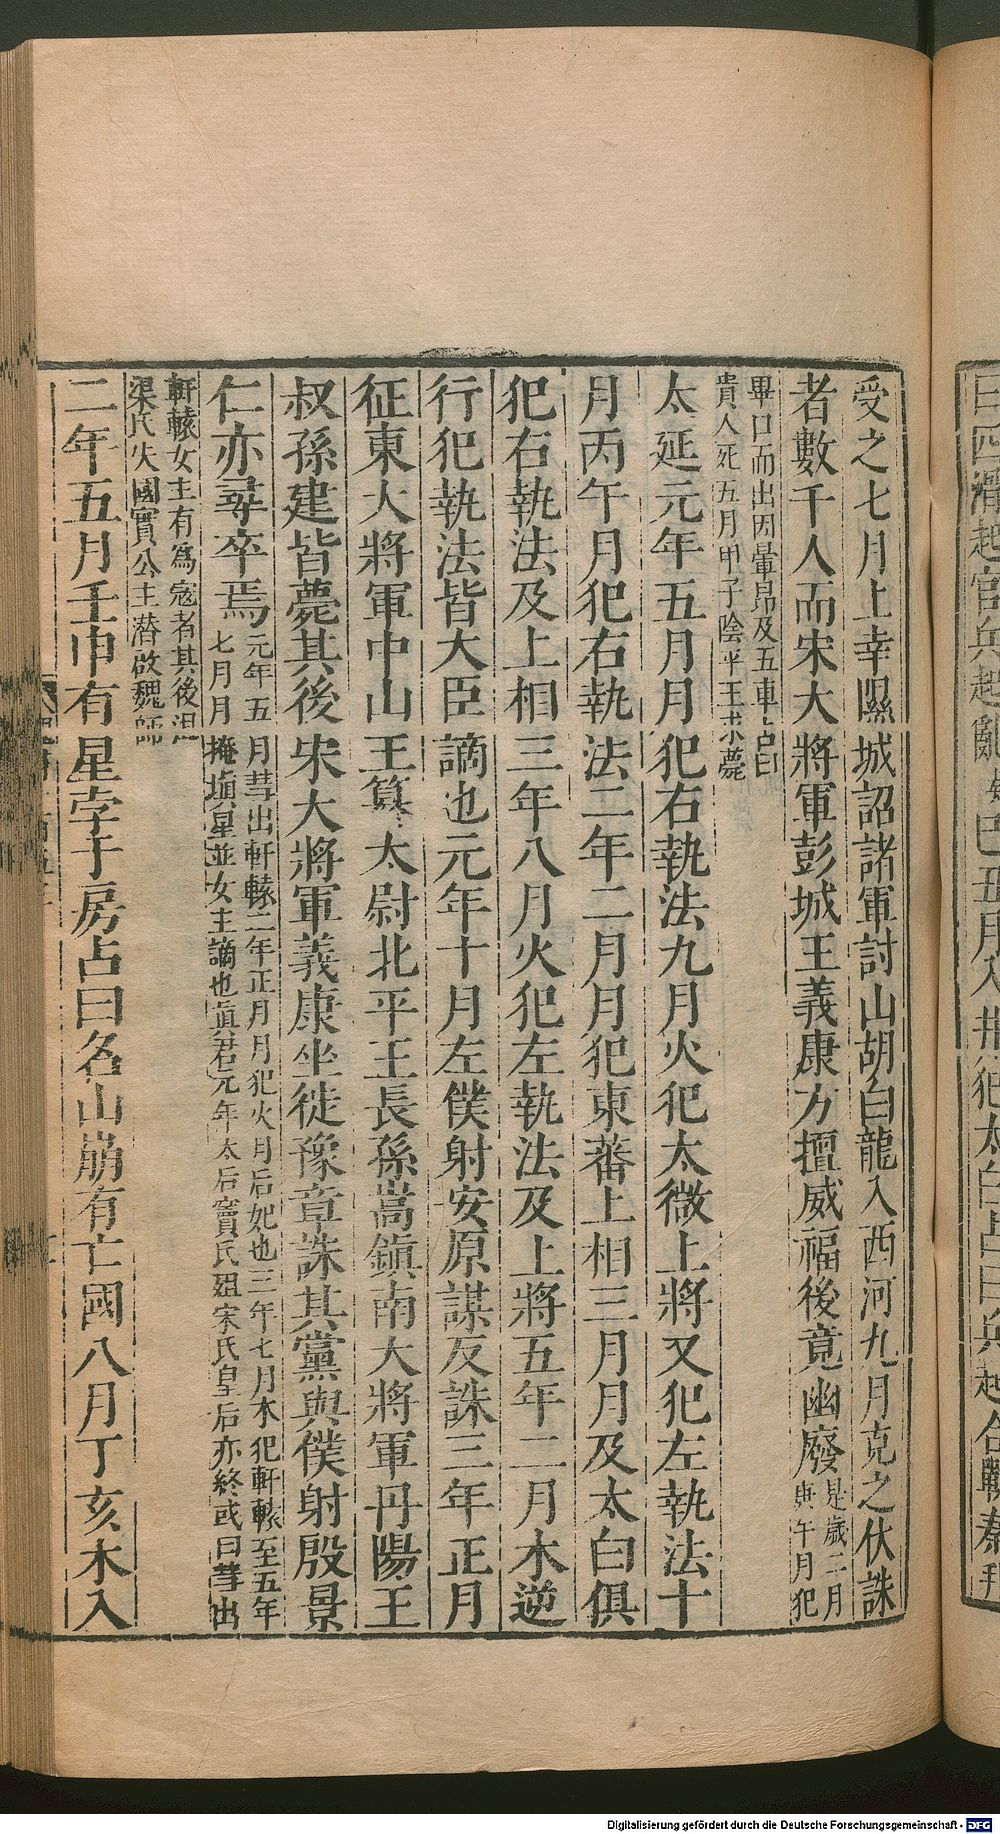 受之七月上幸隰城詔諸軍討山胡白龍入西河九月克之伏誅
者數千人而宋大將軍彭城王義康方擅威福後竟幽廢是歲二月
庚午月犯
畢口而出因暈昴及五車占曰
貴人死五月甲子陰平王求薨
太延元年五月月犯右執法九月火犯太微上將又犯左執法十
月丙午月犯右執法二年二月月犯東蕃上相三月月及太白俱
犯右執法及上相三年八月火犯左執法及上將五年二月木逆
行犯執法皆大臣謫也元年十月左僕射安原謀反誅三年正月
征東大將軍中山王篡太尉北平王長孫嵩鎮南大將軍丹陽王
叔孫建皆薨其後宋大將軍義康坐徙豫章誅其黨與僕射殷景
仁亦尋卒焉元年五月彗出軒轅二年正月月犯火月后妃也三年七月木犯軒轅至五年
七月月掩塡星並女主謫也眞君元年太后竇氏殂宋氏皇后亦終或曰彗出
軒轅女主有爲寇者其後沮
渠氏失國實公主潛啟魏師
二年五月壬申有星孛于房占曰名山崩有亡國八月丁亥木入
Digitalisierung gefördert durch die Deutsche Forschungsgemeinschaft - DFG